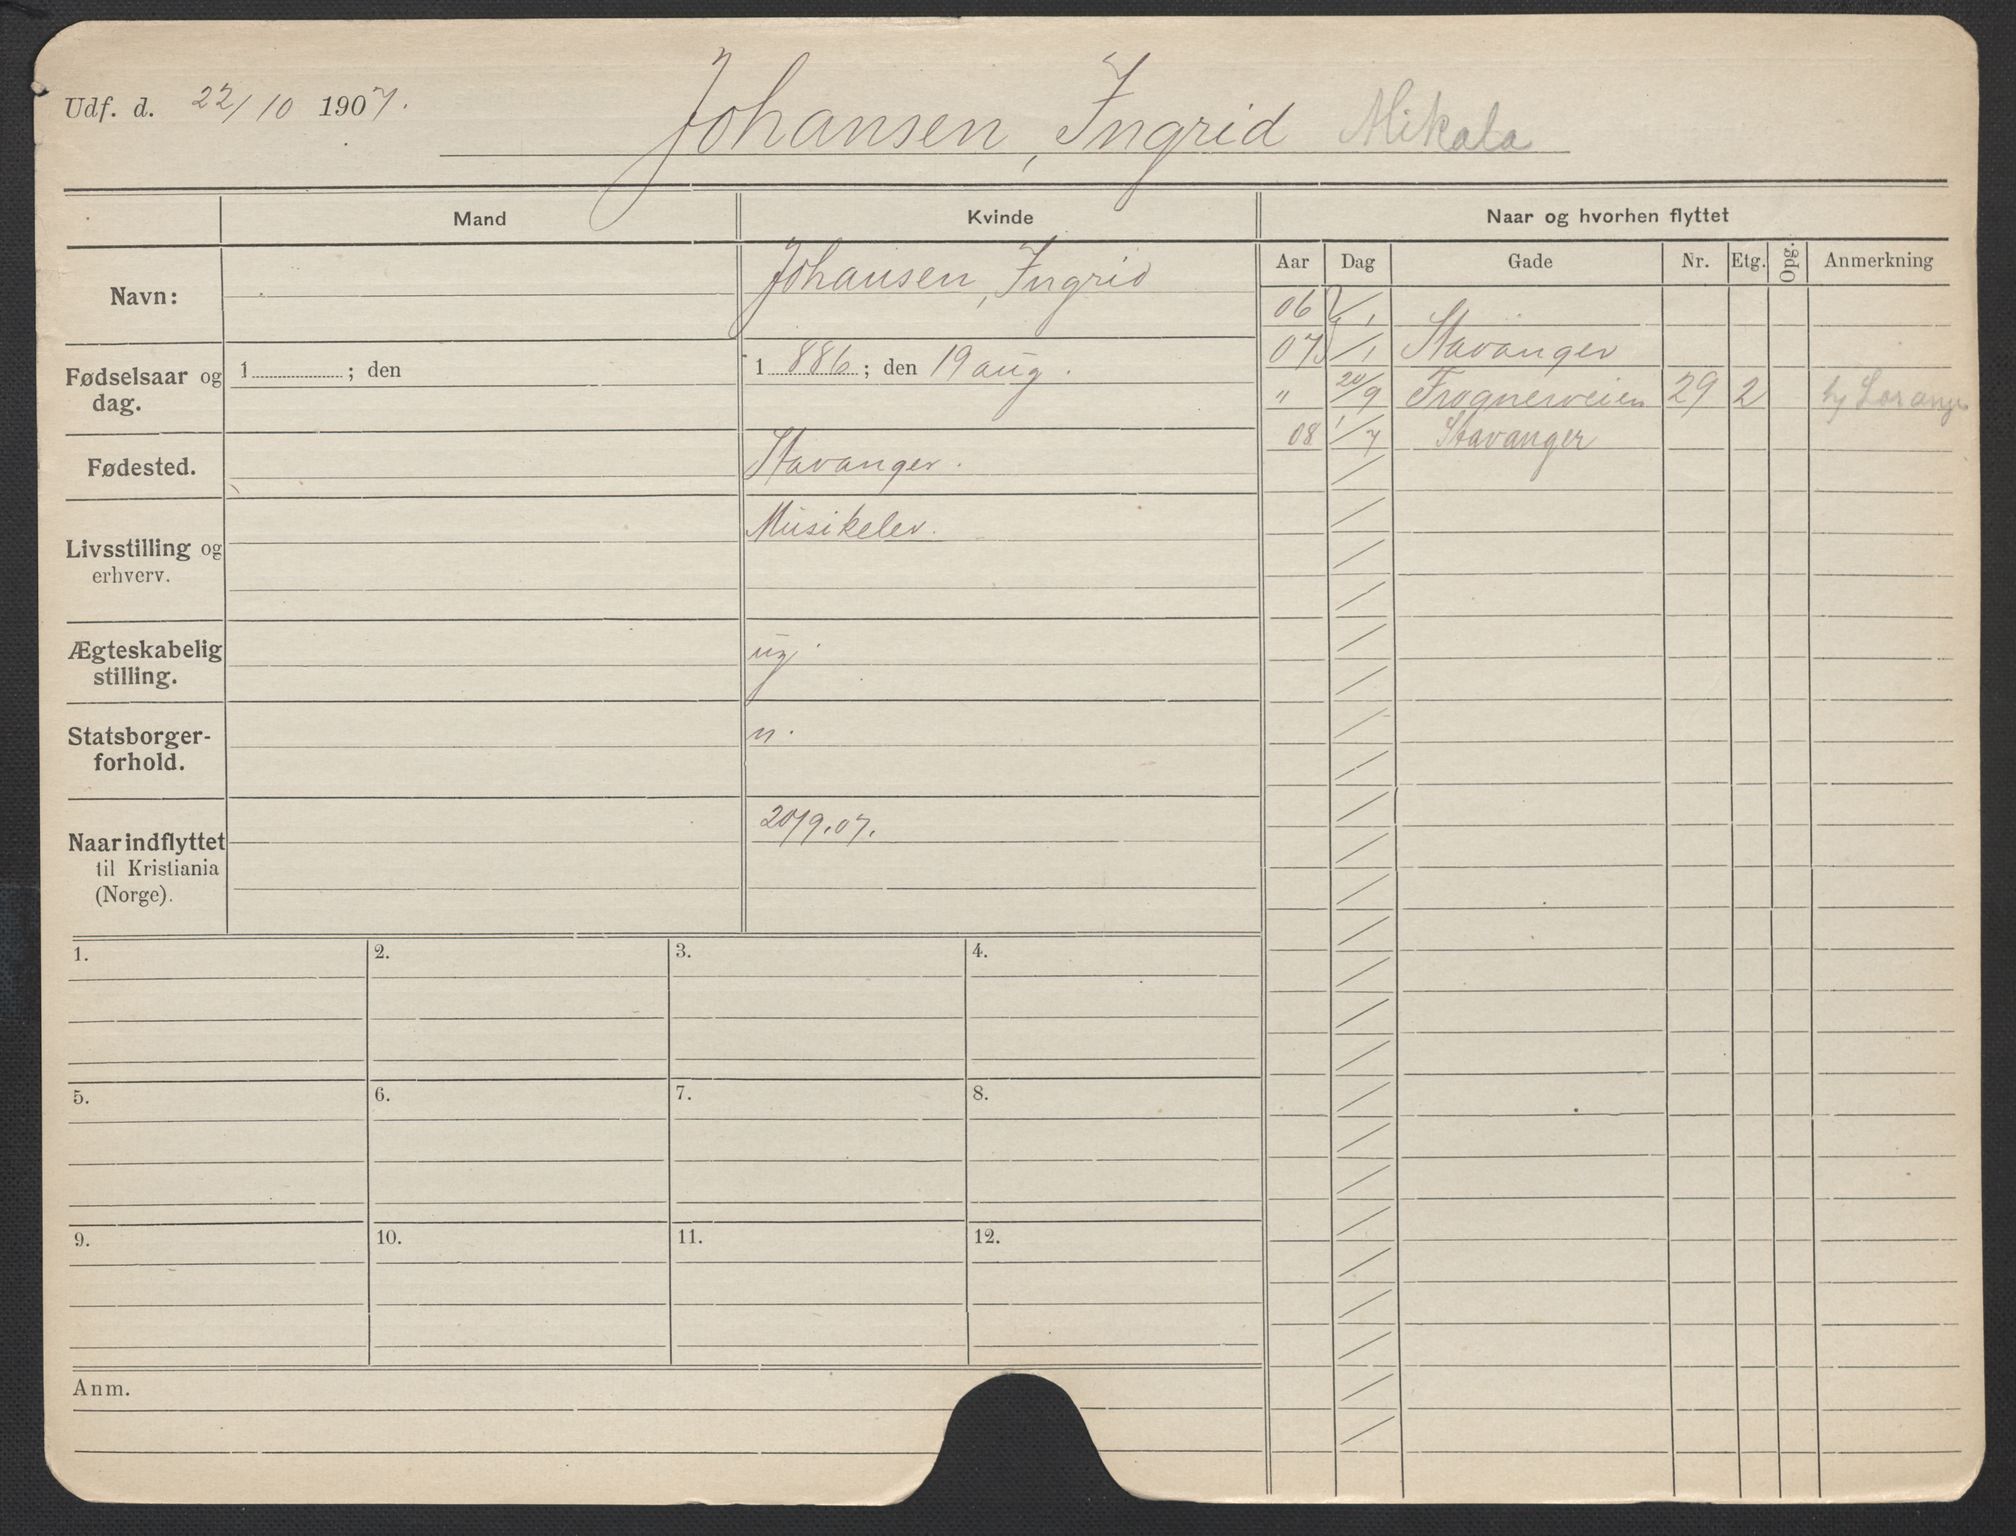 Udf. d. 22/10 1907.
Johansen, Ingrid Mikala
Mand
Kvinde
Naar og hvorhen flyttet
Aar Dag Gade Nr. Etg. Opg. Anmerkning
Navn:
Johansen, Ingrid
Fødselsaar og dag.
1 ; den
1 886 ; den 19 aug.
Fødested.
Stavanger.
Livsstilling og erhverv.
Musikelev.
Ægteskabelig stilling.
ug.
Statsborgerforhold.
n.
Naar indflyttet til Kristiania (Norge).
20/9.07.
06 / 1
07 / 1 Stavanger
" 20/9 Frognerveien 29 2 hj
08 1/7 Stavanger
1. 2. 3. 4.
5. 6. 7. 8.
9. 10. 11. 12.
Anm.